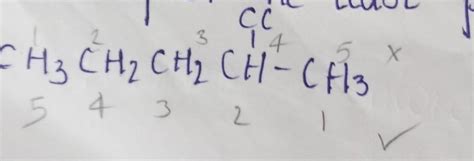 CC
1 2 3 4 5
CH3 CH2 CH2 CH - CH3 ×
5 4 3 2 1 ✓